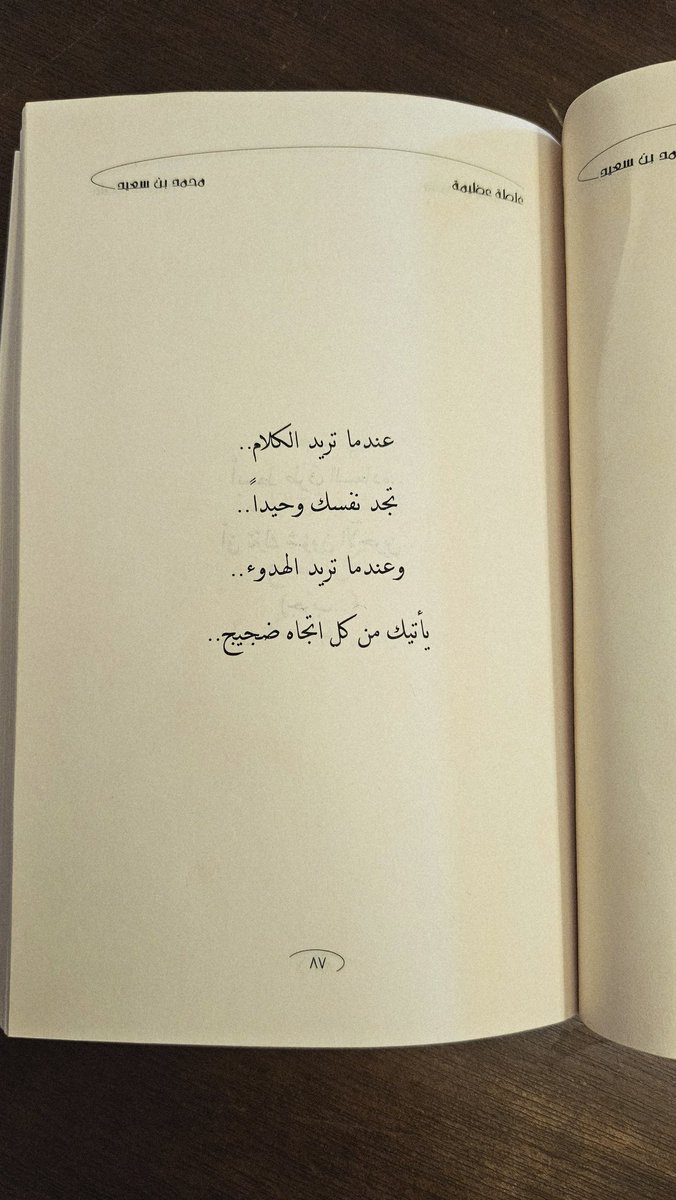 غلطة عظيمة
محمد بن سعيد
عندما تريد الكلام..
تجد نفسك وحيداً..
وعندما تريد الهدوء..
يأتيك من كل اتجاه ضجيج..
٨٧
بن سعيد